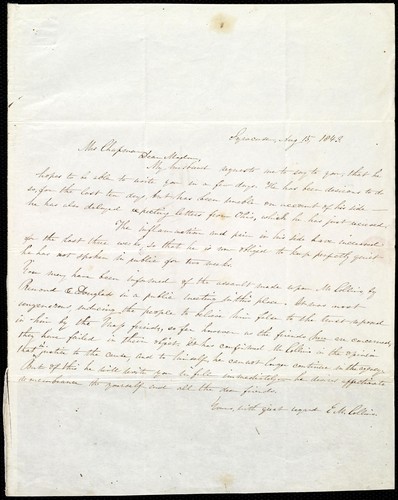 Syracuse, Aug 15. 1843.
Mrs Chapman,
Dear Madam,
My husband requests me to say to you, that he
hopes to be able to write you in a few days. He has been desirous to do
so, for the last ten days, but has been unable on account of his side
he has also delayed expecting letters from Ohio, which he has just received.
The inflammation and pain in his side have increased
for the last three weeks, so that he is now obliged to keep perfectly quiet
he has not spoken in public for two weeks.
You may have been informed of the assault made upon Mr Collins by
Remond & Douglass in a public meeting in this place. It was most
ungenerous, inducing the people to believe him false to the trust reposed
in him by the Mass friends, so far however as the friends here are concerned,
they have failed in their object. It has confirmed Mr Collins in the opinion
that in justice to the cause, and to himself, he cannot longer continue in the agency
But of this he will write you in full immediately he desires affectionate
remembrance to yourself and all the dear friends.
Yours, with great regard E. M. Collins